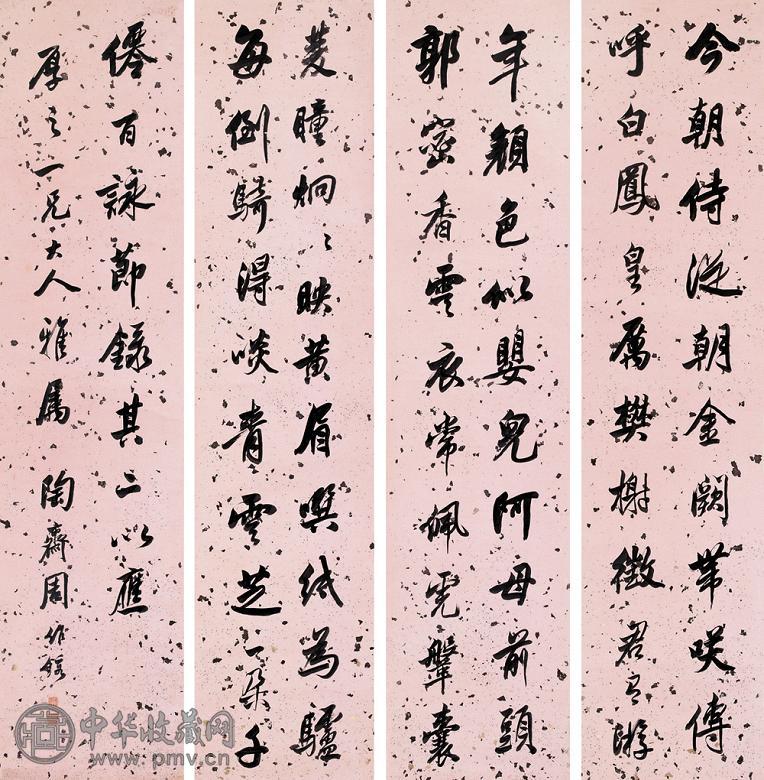 今朝侍從朝金闕帶咲傳
呼白鳳皇厲樊榭徵君有游
年顏色似嬰兒阿母前頭
郭密香雲衣常佩虎鞶囊
菱瞳炯〻映黃眉噀紙為驢
每倒騎得啖青雲芝一朵千
僊百詠節錄其二以應
厚之一兄大人雅屬 陶齋周作鎔
中华收藏网
www.pmv.cn